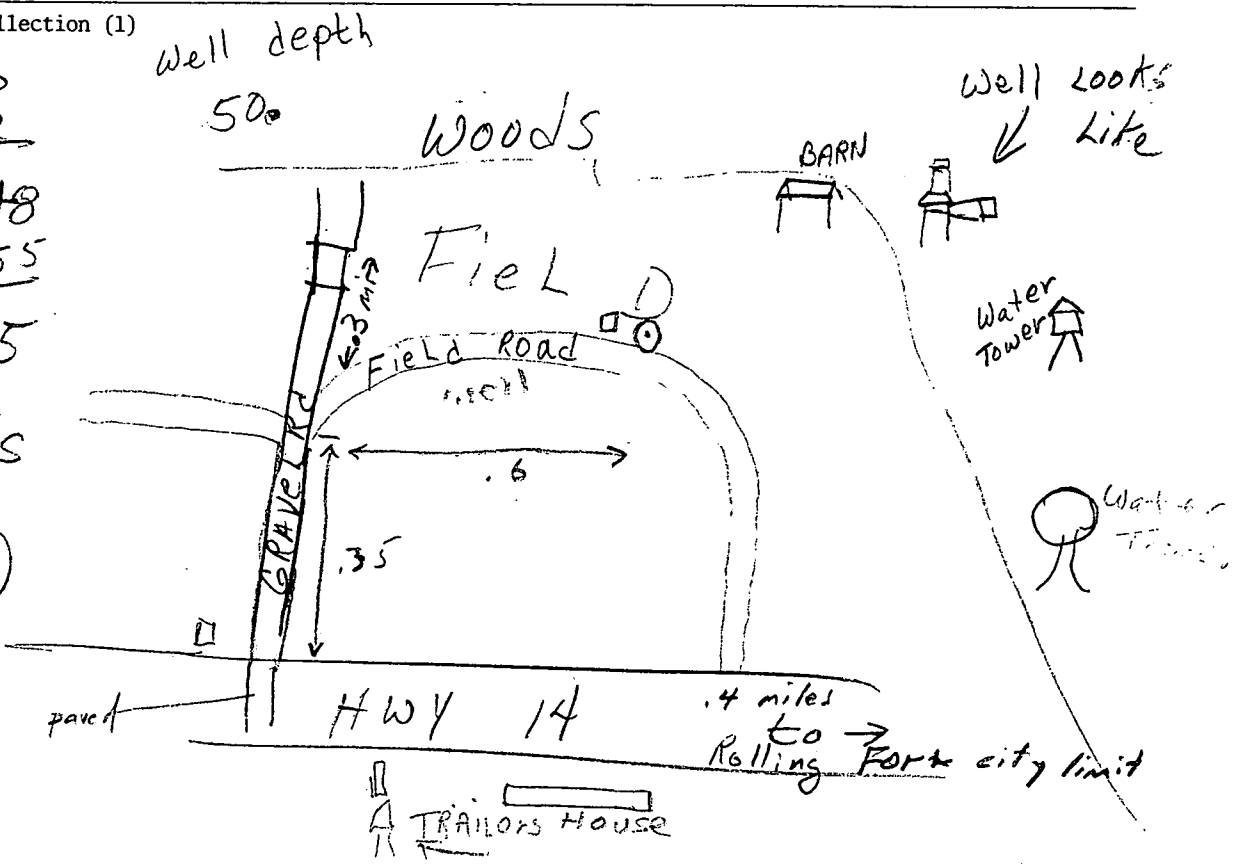 llection (1)
Well depth
50.
Woods
BARN
Well Looks
Like
18
55
5
S
FieLD
.3 mi
Field Road
Water
Tower
GRAVEL Rd
.6
.35
Water
paved
HWY 14
.4 miles
to
Rolling Fork city limit
TRAILORS House